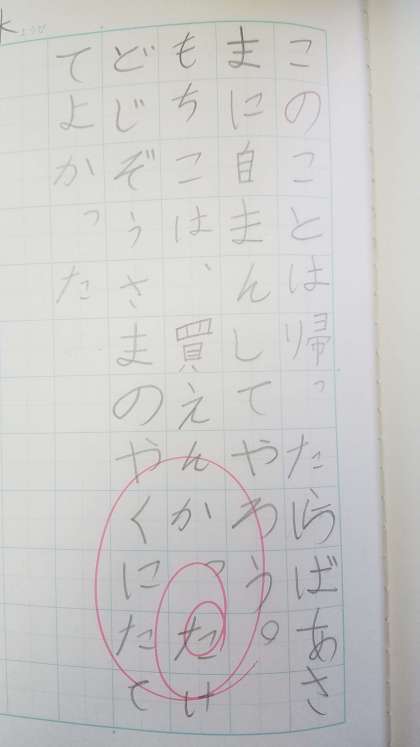 ようび
このことは帰ったらばあさ
まに自まんしてやろう。
もちこは、買えんかったけ
どじぞうさまのやくにたて
てよかった